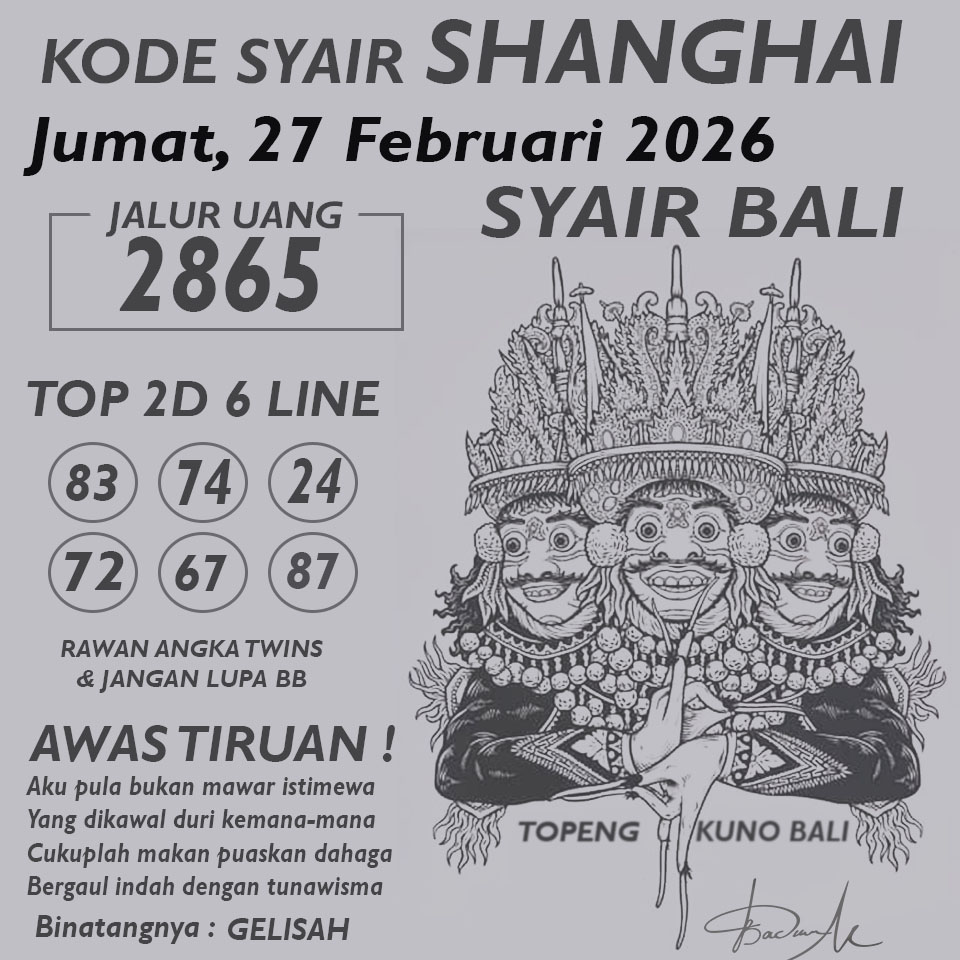 KODE SYAIR SHANGHAI
Jumat, 27 Februari 2026
SYAIR BALI
JALUR UANG
2865
TOP 2D 6 LINE
83 74 24
72 67 87
RAWAN ANGKA TWINS
& JANGAN LUPA BB
AWAS TIRUAN !
Aku pula bukan mawar istimewa
Yang dikawal duri kemana-mana
Cukuplah makan puaskan dahaga
Bergaul indah dengan tunawisma
Binatangnya : GELISAH
TOPENG KUNO BALI